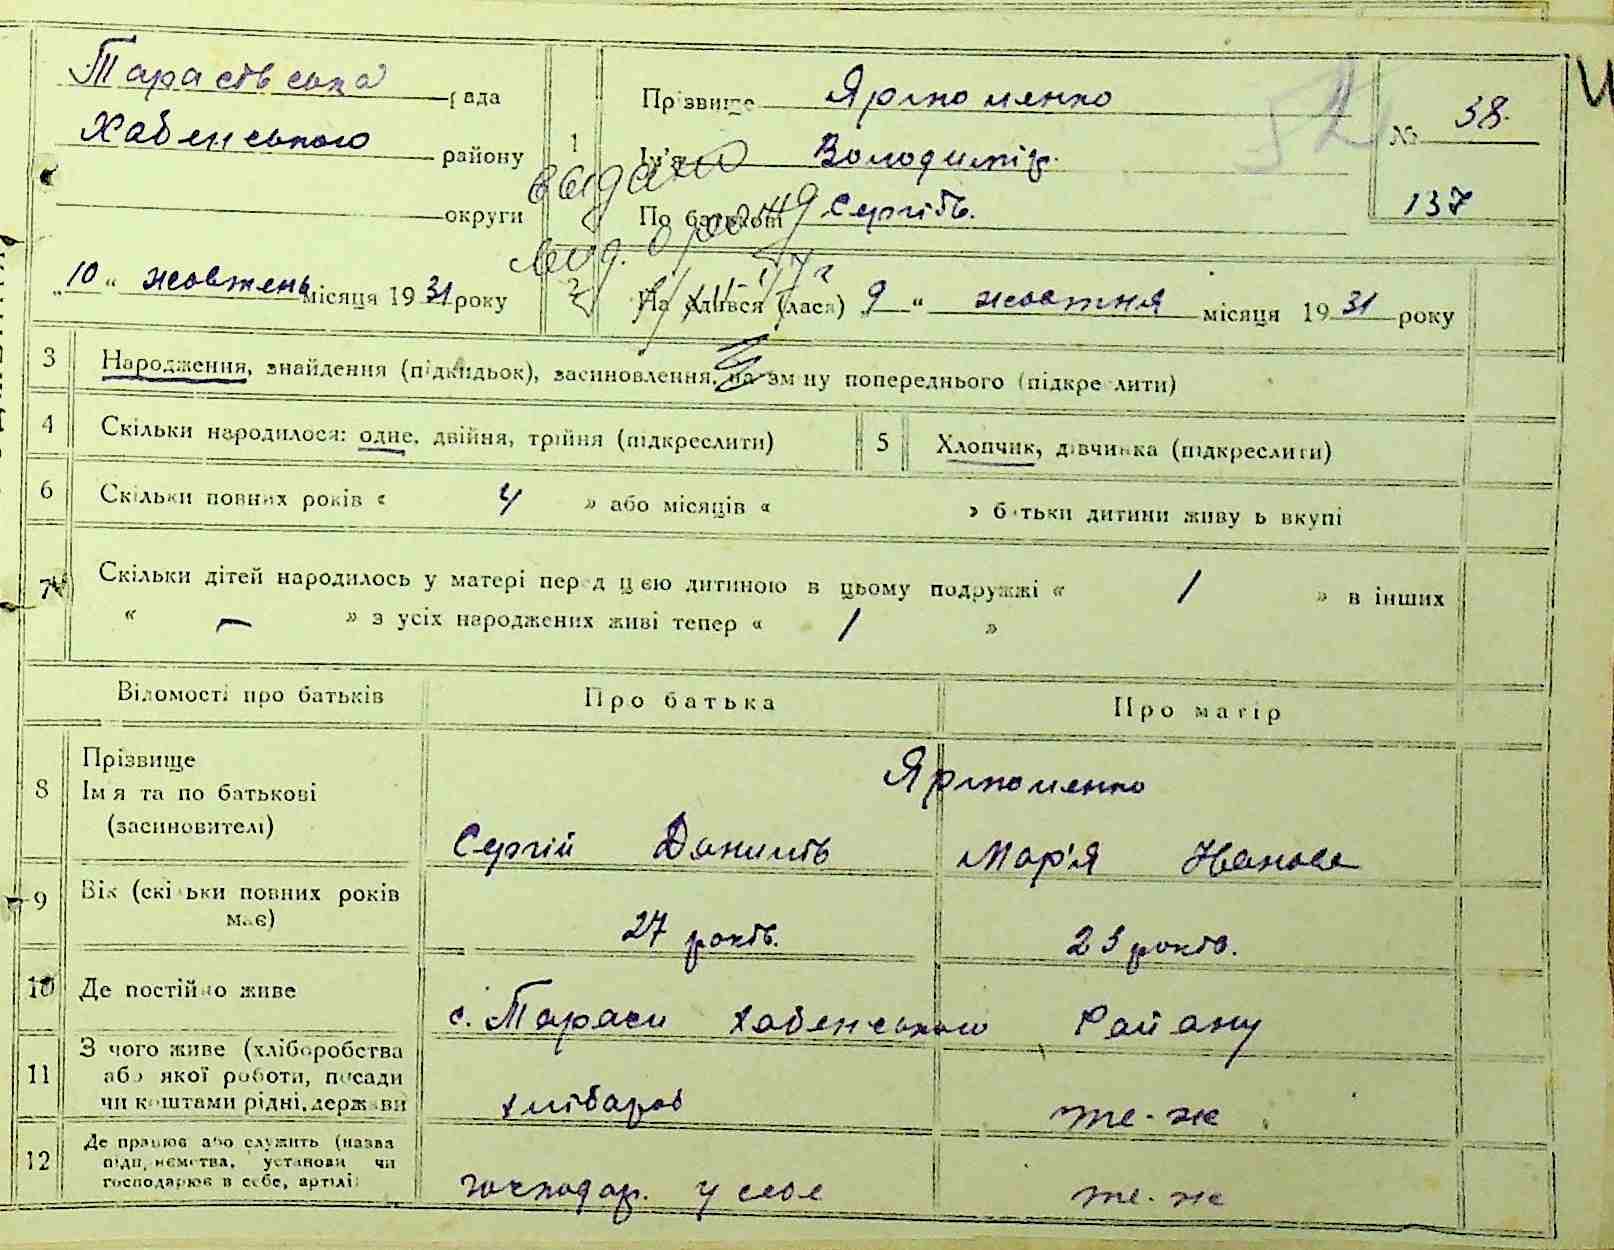 Тарасівська рада
Хабенського району
округи
„10“ жовтень місяця 1931 року
1
Прізвище Ярмоменко
Ім'я Володимір.
По батькові Сергіїв.
№ 38.
137
видано
2
Народився (лася) 9 “ жовтня місяця 1931 року
3 Народження, знайдення (підкидьок), засиновлення, на зміну попереднього (підкреслити)
4 Скільки народилося: одне, двійня, трійня (підкреслити)
5 Хлопчик, дівчинка (підкреслити)
6 Скільки повних років « 4 » або місяців « » батьки дитини живуть вкупі
7 Скільки дітей народилось у матері перед цією дитиною в цьому подружжі « 1 » в інших
« — » з усіх народжених живі тепер « 1 »
Відомості про батьків
Про батька
Про матір
8 Прізвище
Імя та по батькові
(засиновителі)
Ярмоменко
Сергій Данилів
Мар'я Іванова
9 Вік (скільки повних років
має)
27 років.
23 років.
10 Де постійно живе
с. Тараси Хабенського Району
11 З чого живе (хліборобства
або якої роботи, посади
чи коштами рідні, держави
хлібароб
те-ж
12 Де працює або служить (назва
підприємства, установи чи
господарює в себе, артілі
господар. у себе
те-ж